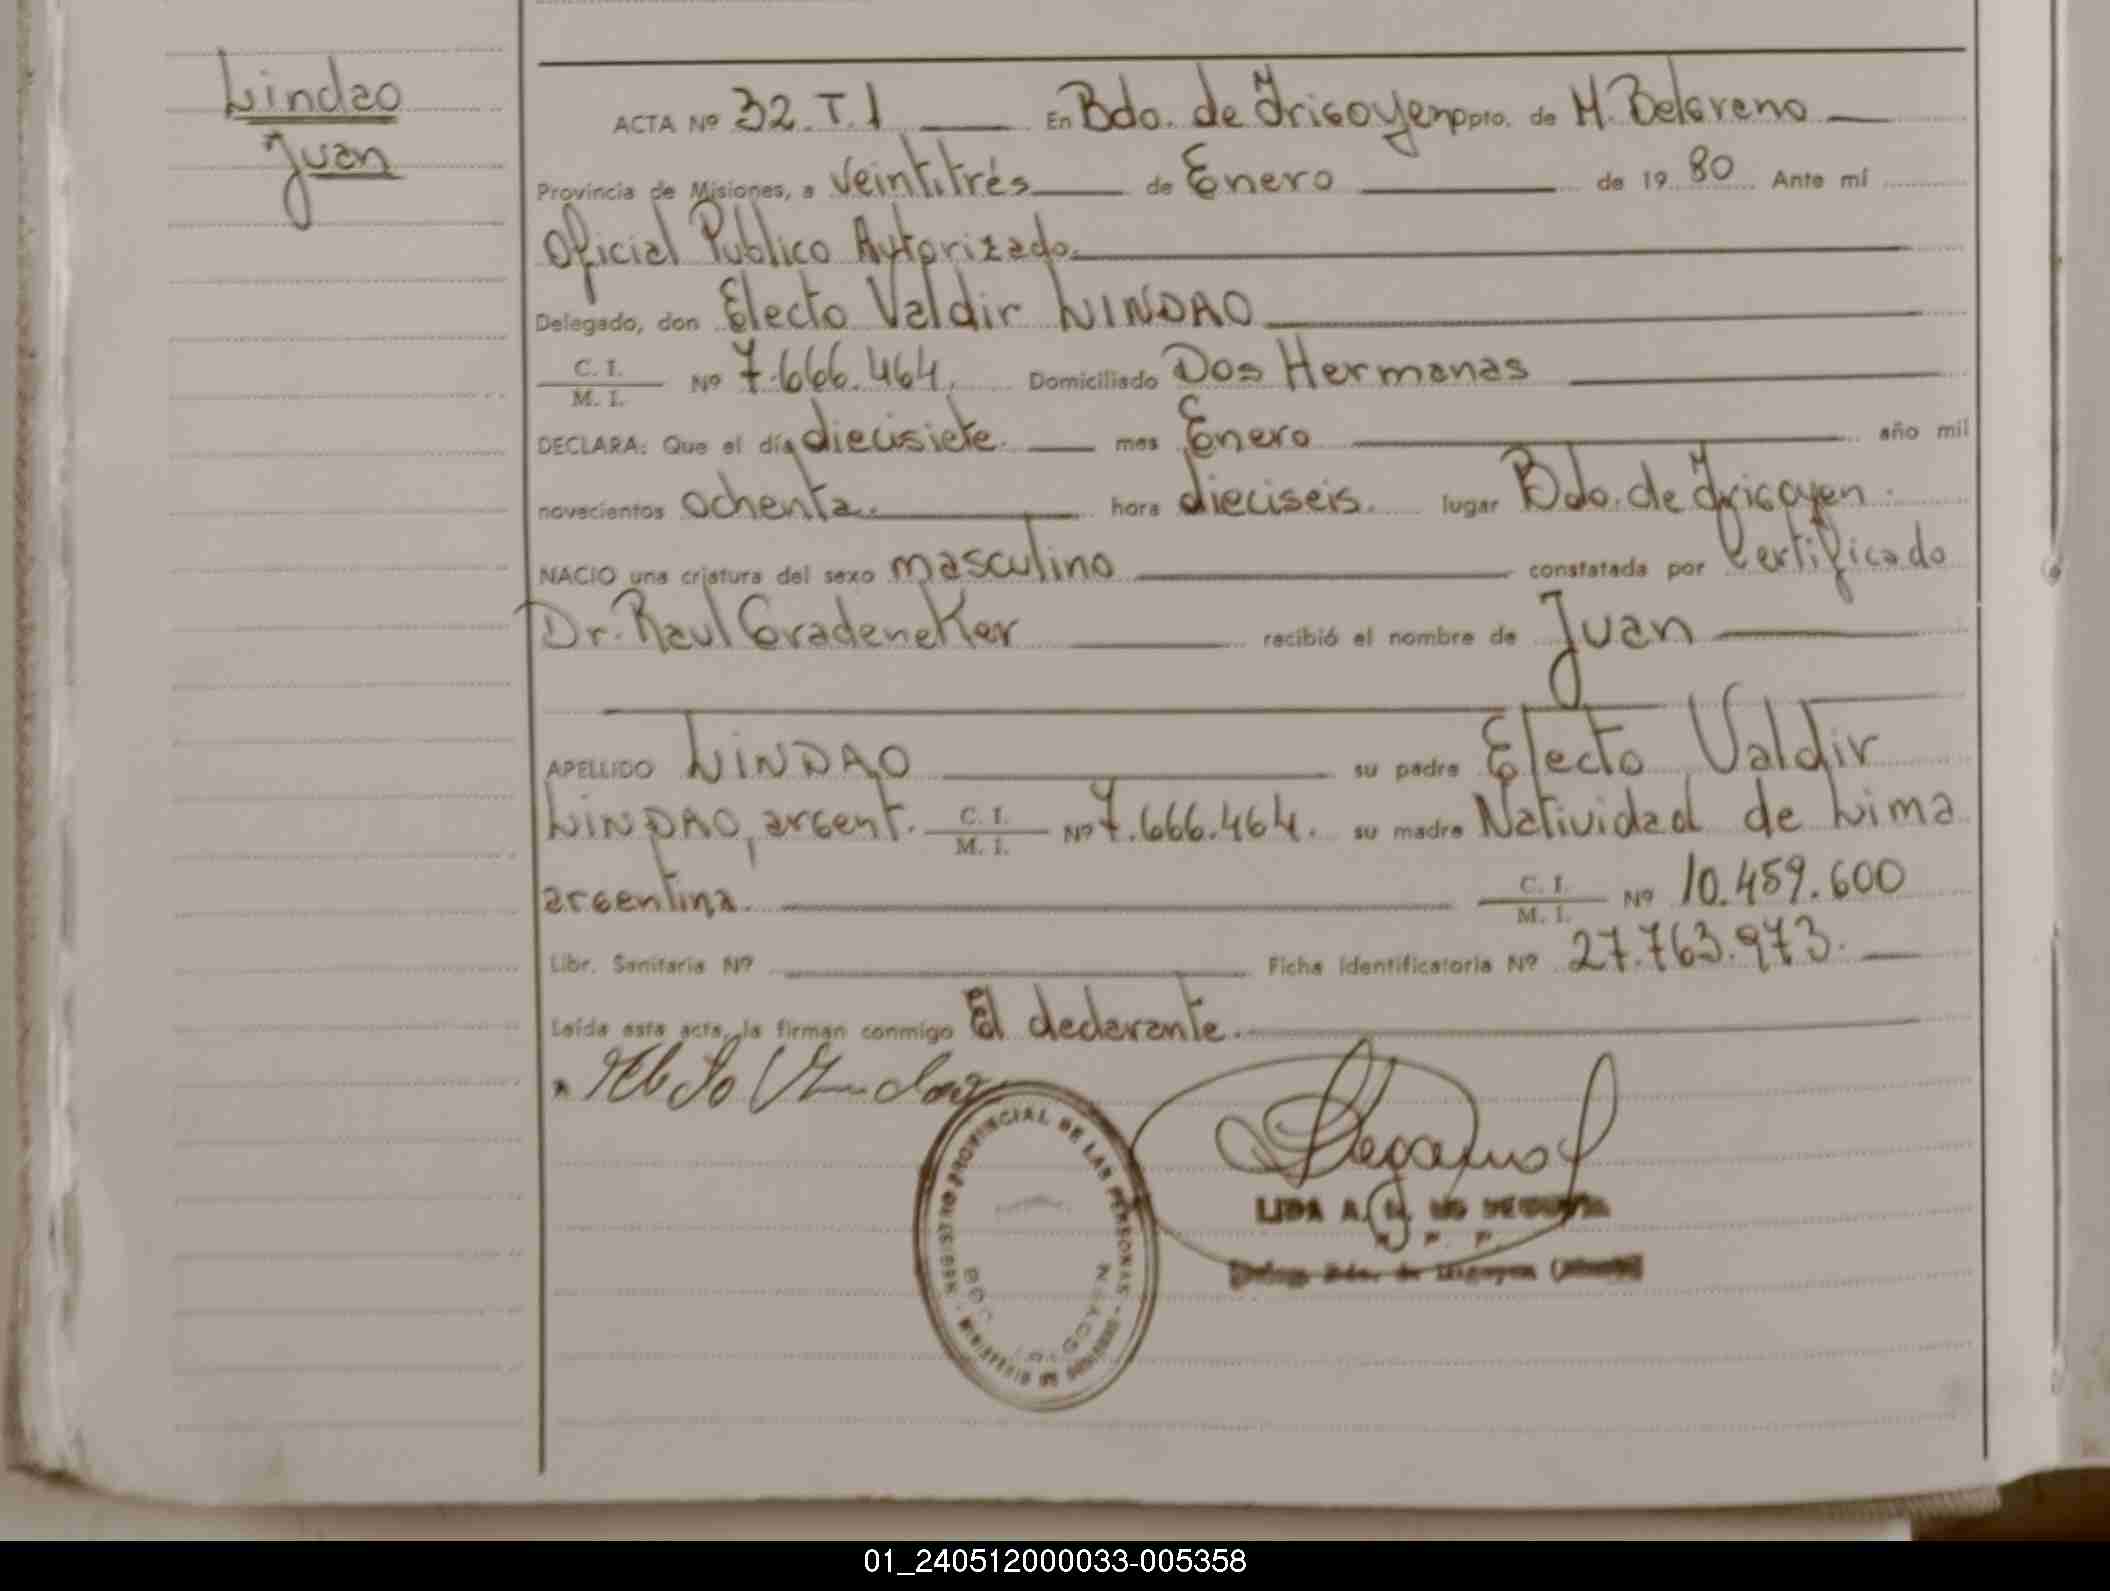 Lindao
Juan
ACTA Nº 32.T.1 En Bdo. de Irigoyen Dpto. de M. Belgrano
Provincia de Misiones, a veintitrés de Enero de 19 80 Ante mí
Oficial Publico Autorizado.
Delegado, don Electo Valdir LINDAO
C. I. / M. I. Nº 7.666.464. Domiciliado Dos Hermanas
DECLARA: Que el día diecisiete. mes Enero año mil
novecientos ochenta. hora dieciseis. lugar Bdo. de Irigoyen.
NACIO una criatura del sexo masculino constatada por Certificado
Dr. Raul Gradeneker recibió el nombre de Juan
APELLIDO LINDAO su padre Electo Valdir
LINDAO, argent. C. I. / M. I. Nº 7.666.464. su madre Natividad de Lima
argentina. C. I. / M. I. Nº 10.459.600
Libr. Sanitaria Nº Ficha Identificatoria Nº 27.763.973.
Leída esta acta, la firman conmigo el declarante.
REGISTRO PROVINCIAL DE LAS PERSONAS - MINISTERIO DE GOBIERNO -
BDO. IRIGOYEN
LIDA A.
01_240512000033-005358